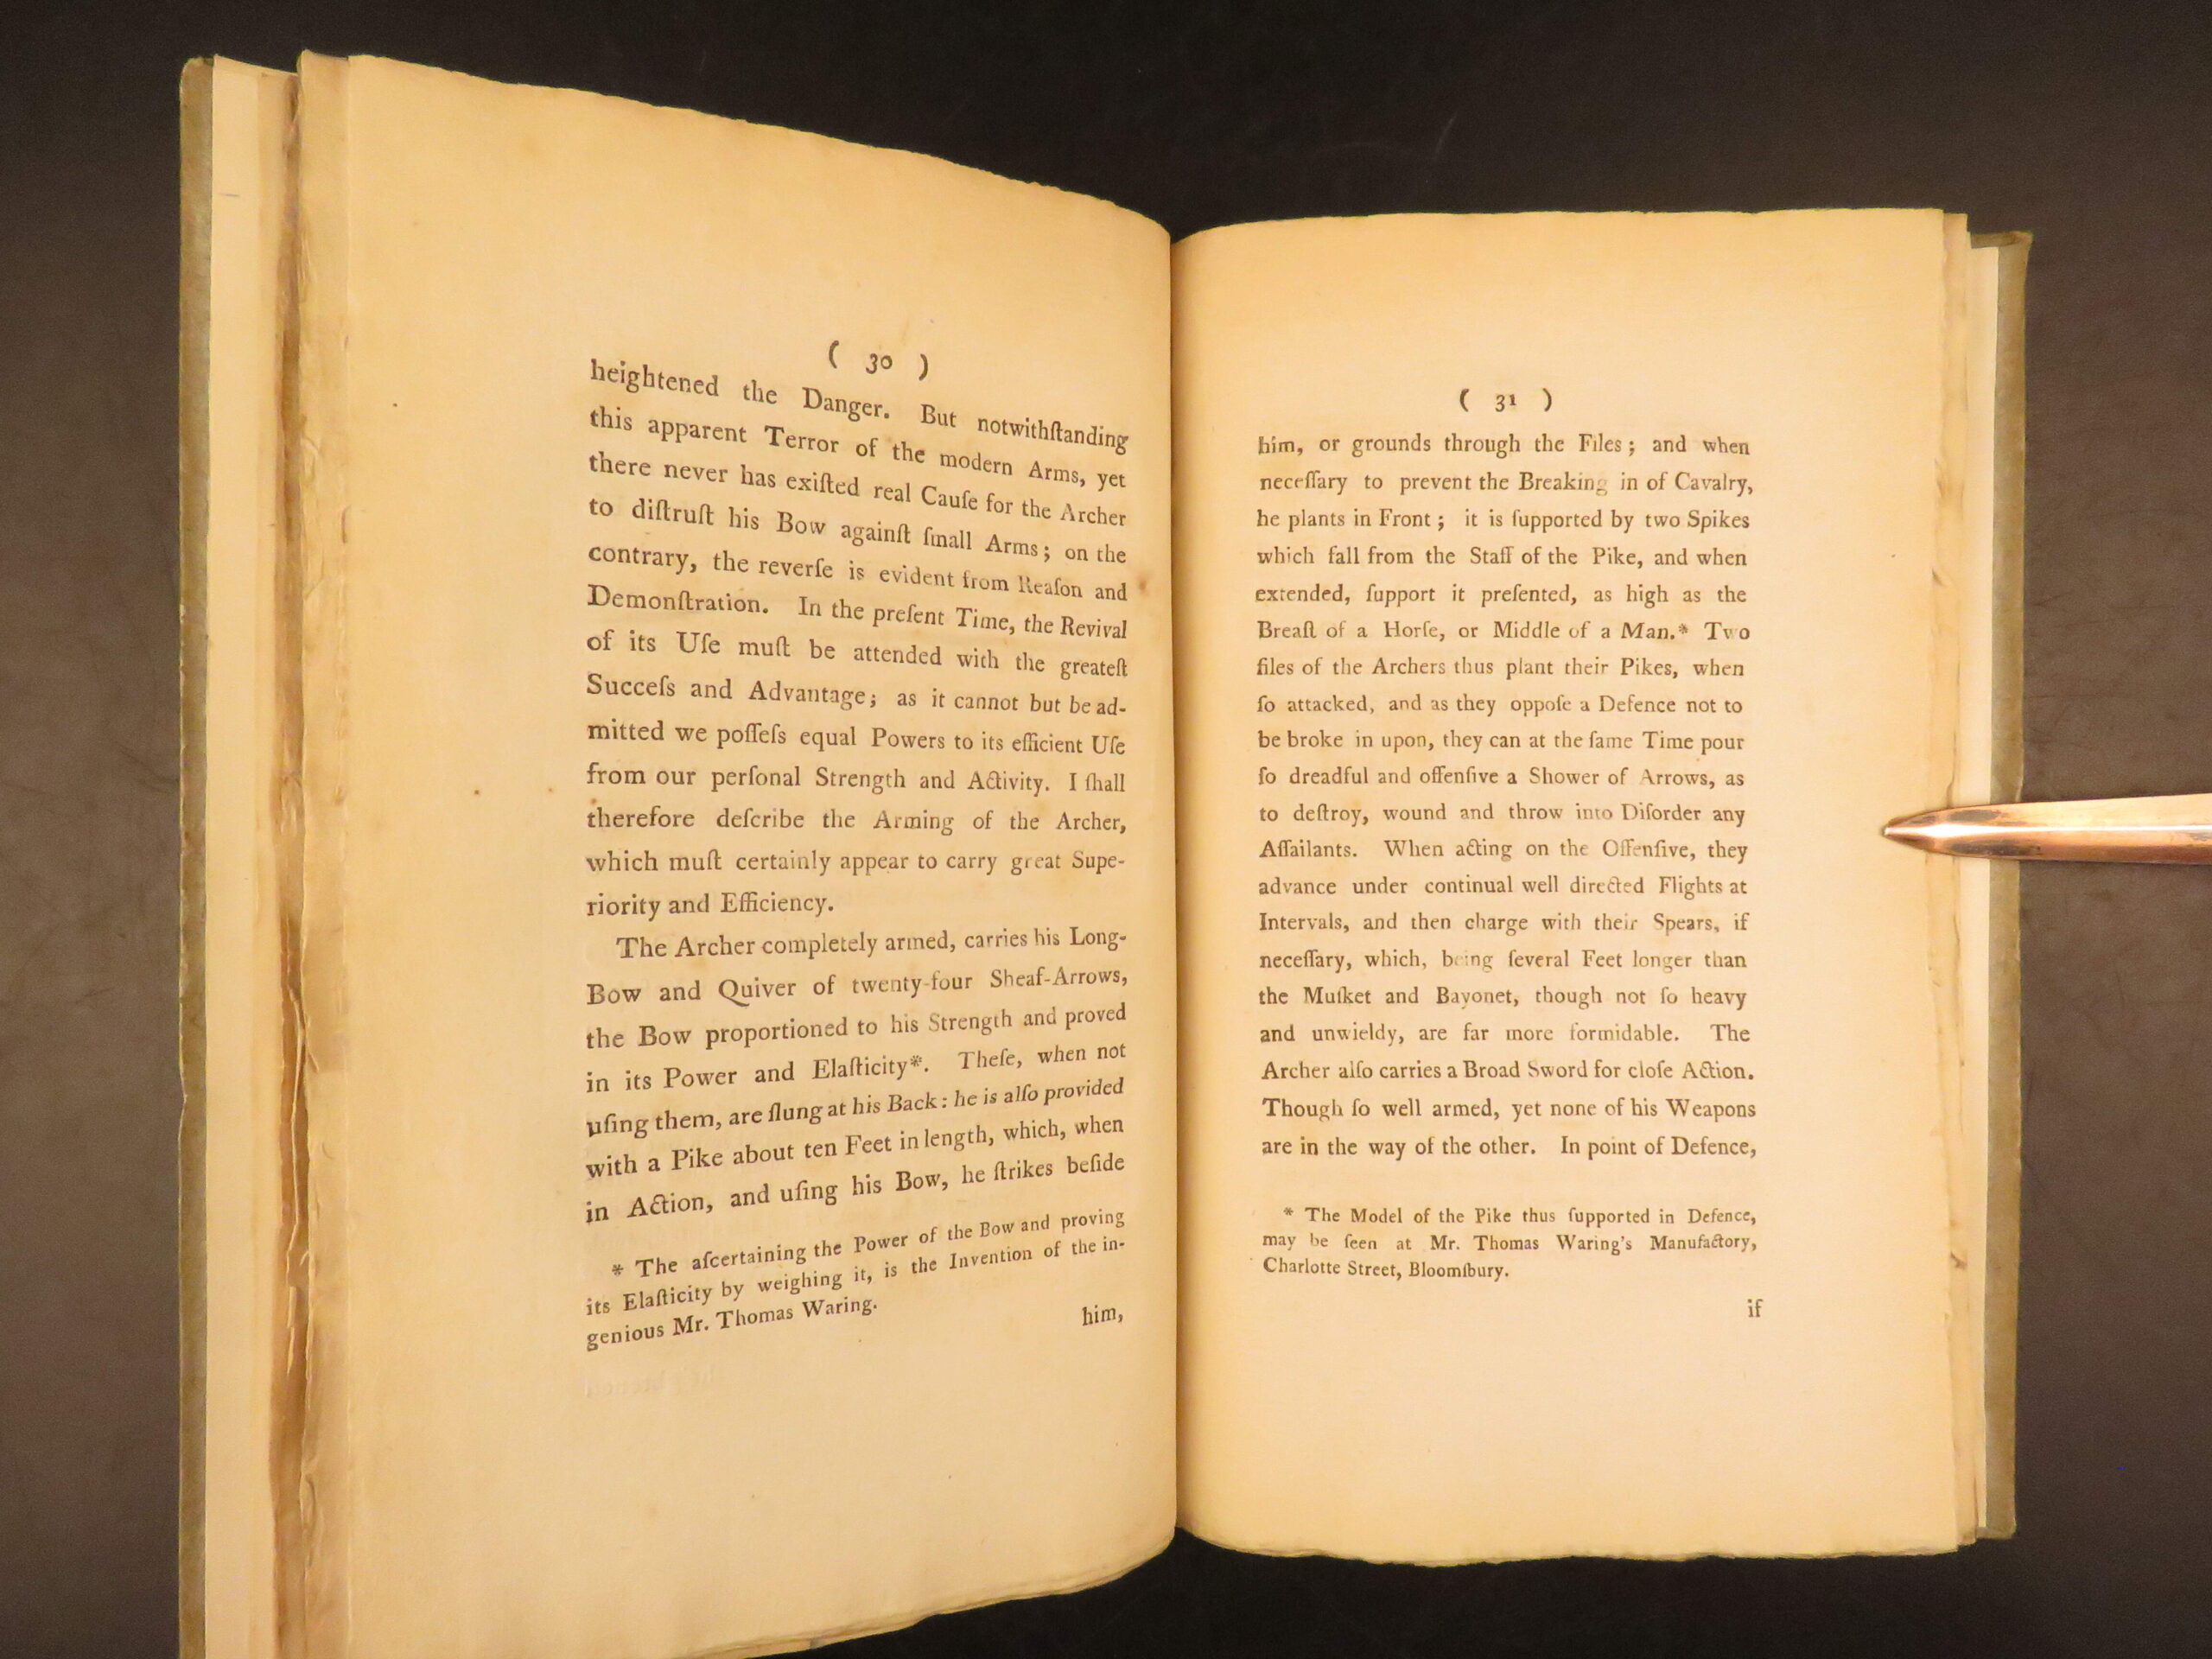 ( 30 )
heightened the Danger. But notwithſtanding
this apparent Terror of the modern Arms, yet
there never has exiſted real Cauſe for the Archer
to diſtruſt his Bow againſt ſmall Arms; on the
contrary, the reverſe is evident from Reaſon and
Demonſtration. In the preſent Time, the Revival
of its Uſe muſt be attended with the greateſt
Succeſs and Advantage; as it cannot but be ad-
mitted we poſſeſs equal Powers to its efficient Uſe
from our perſonal Strength and Activity. I ſhall
therefore deſcribe the Arming of the Archer,
which muſt certainly appear to carry great Supe-
riority and Efficiency.
The Archer completely armed, carries his Long-
Bow and Quiver of twenty-four Sheaf-Arrows,
the Bow proportioned to his Strength and proved
in its Power and Elaſticity*. Theſe, when not
uſing them, are ſlung at his Back: he is alſo provided
with a Pike about ten Feet in length, which, when
in Action, and uſing his Bow, he ſtrikes beſide
* The aſcertaining the Power of the Bow and proving
its Elaſticity by weighing it, is the Invention of the in-
genious Mr. Thomas Waring.
him,
( 31 )
him, or grounds through the Files; and when
neceſſary to prevent the Breaking in of Cavalry,
he plants in Front; it is ſupported by two Spikes
which fall from the Staff of the Pike, and when
extended, ſupport it preſented, as high as the
Breaſt of a Horſe, or Middle of a Man.* Two
files of the Archers thus plant their Pikes, when
ſo attacked, and as they oppoſe a Defence not to
be broke in upon, they can at the ſame Time pour
ſo dreadful and offenſive a Shower of Arrows, as
to deſtroy, wound and throw into Diſorder any
Aſſailants. When acting on the Offenſive, they
advance under continual well directed Flights at
Intervals, and then charge with their Spears, if
neceſſary, which, being ſeveral Feet longer than
the Muſket and Bayonet, though not ſo heavy
and unwieldy, are far more formidable. The
Archer alſo carries a Broad Sword for cloſe Action.
Though ſo well armed, yet none of his Weapons
are in the way of the other. In point of Defence,
* The Model of the Pike thus ſupported in Defence,
may be ſeen at Mr. Thomas Waring's Manufactory,
Charlotte Street, Bloomſbury.
if